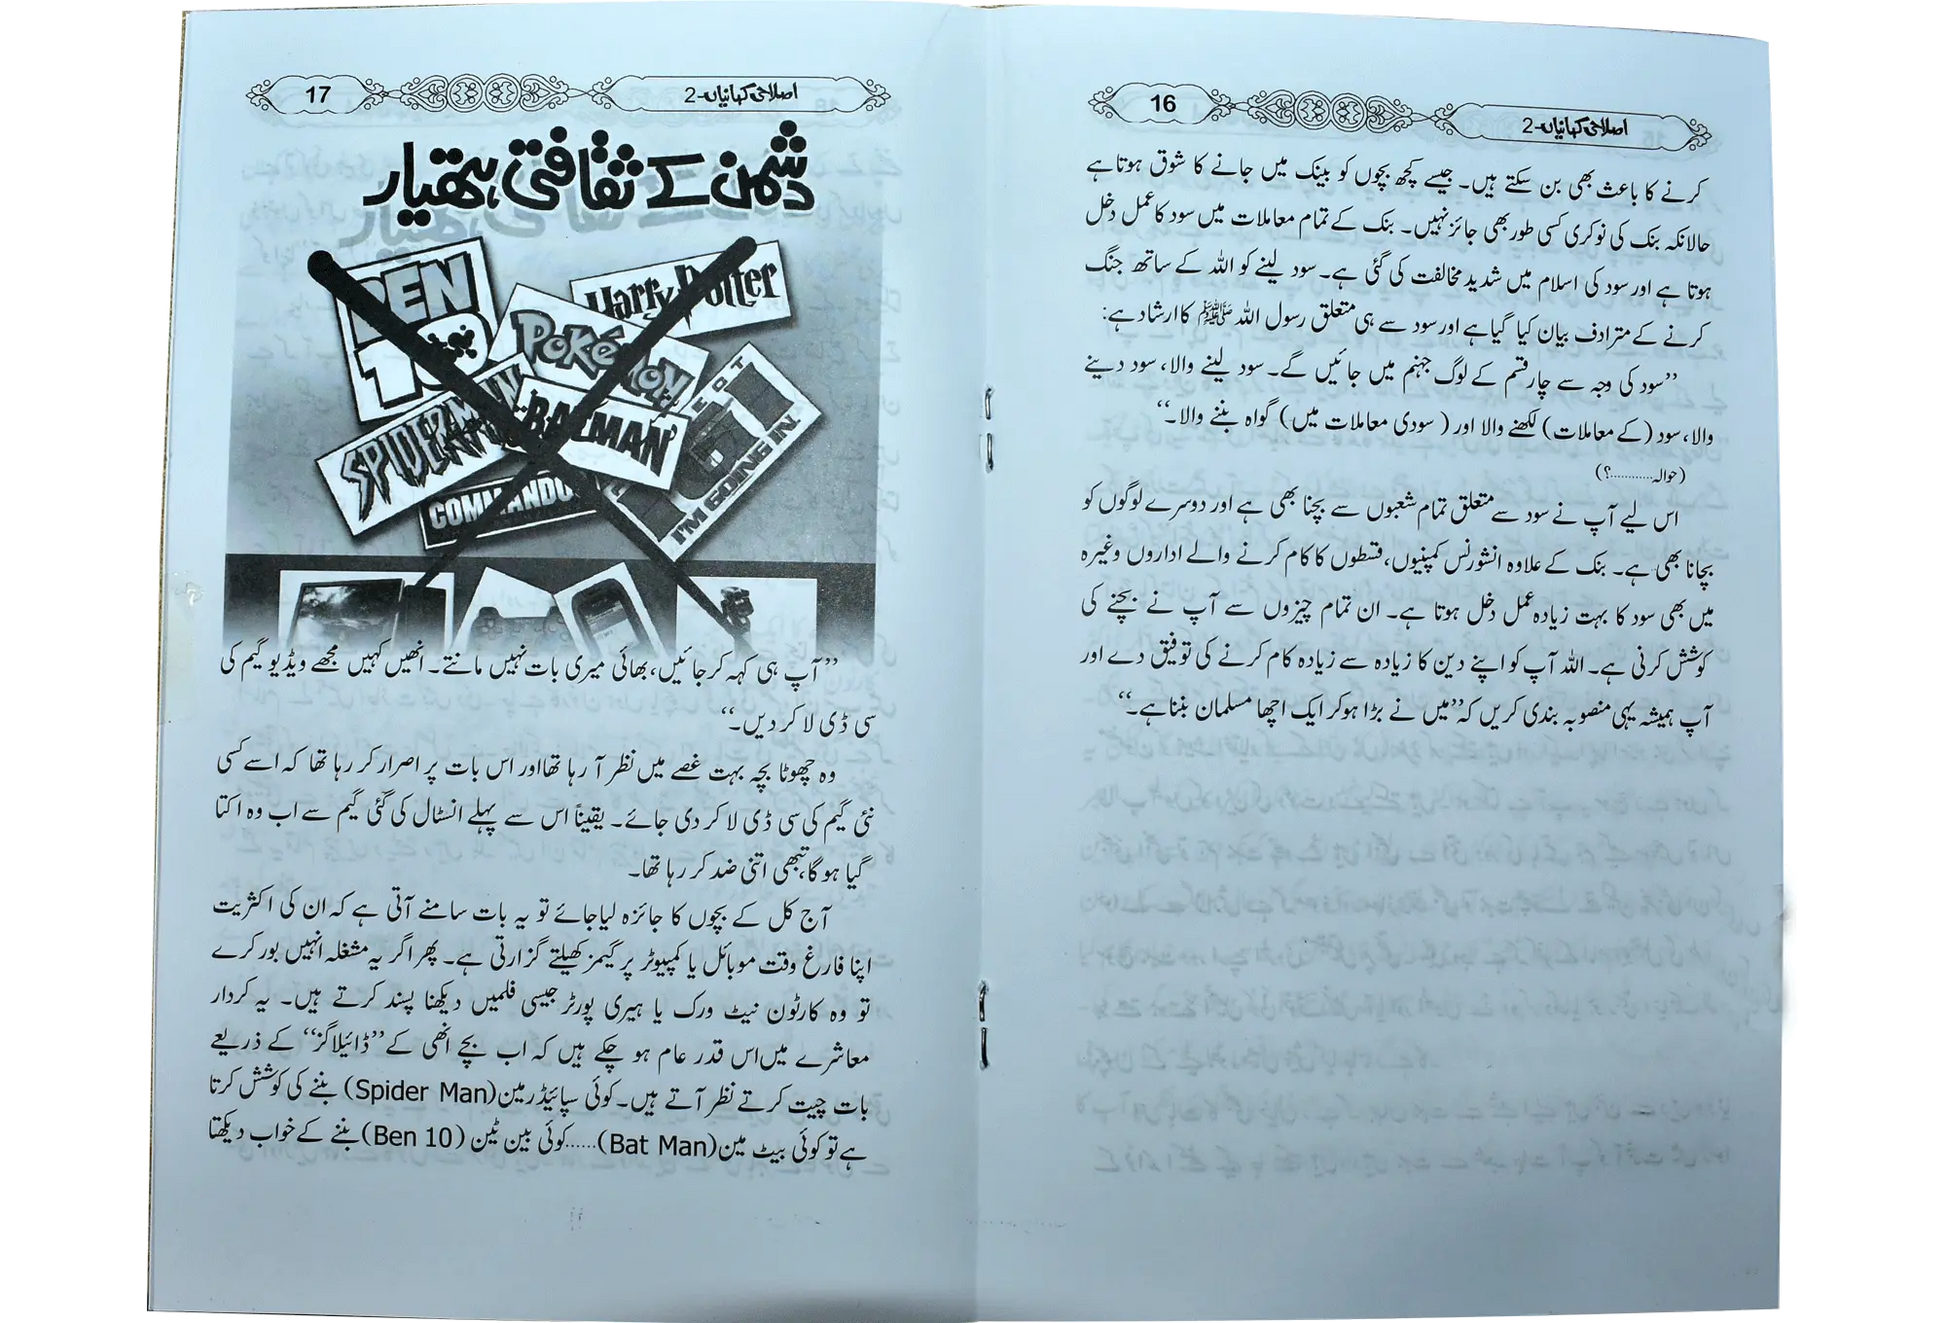 اصلاحی کہانیاں-2
16
کرنے کا باعث بھی بن سکتے ہیں۔ جیسے کچھ بچوں کو بینک میں جانے کا شوق ہوتا ہے
حالانکہ بنک کی نوکری کسی طور بھی جائز نہیں۔ بنک کے تمام معاملات میں سود کا عمل دخل
ہوتا ہے اور سود کی اسلام میں شدید مخالفت کی گئی ہے۔ سود لینے کو اللہ کے ساتھ جنگ
کرنے کے مترادف بیان کیا گیا ہے اور سود سے ہی متعلق رسول اللہ ﷺ کا ارشاد ہے:
”سود کی وجہ سے چار قسم کے لوگ جہنم میں جائیں گے۔ سود لینے والا، سود دینے
والا، سود (کے معاملات) لکھنے والا اور (سودی معاملات میں) گواہ بننے والا۔“
(حوالہ............؟)
اس لیے آپ نے سود سے متعلق تمام شعبوں سے بچنا بھی ہے اور دوسرے لوگوں کو
بچانا بھی ہے۔ بنک کے علاوہ انشورنس کمپنیوں، قسطوں کا کام کرنے والے اداروں وغیرہ
میں بھی سود کا بہت زیادہ عمل دخل ہوتا ہے۔ ان تمام چیزوں سے آپ نے بچنے کی
کوشش کرنی ہے۔ اللہ آپ کو اپنے دین کا زیادہ سے زیادہ کام کرنے کی توفیق دے اور
آپ ہمیشہ یہی منصوبہ بندی کریں کہ ”میں نے بڑا ہو کر ایک اچھا مسلمان بننا ہے۔“
اصلاحی کہانیاں-2
17
دشمن کے ثقافتی ہتھیار
BEN 10
Harry Potter
Pokémon
SPIDERMAN
BATMAN
COMMANDOS
I'M GOING IN.
”آپ ہی کہہ کر جائیں، بھائی میری بات نہیں مانتے۔ انھیں کہیں مجھے ویڈیو گیم کی
سی ڈی لا کر دیں۔“
وہ چھوٹا بچہ بہت غصے میں نظر آ رہا تھا اور اس بات پر اصرار کر رہا تھا کہ اسے کسی
نئی گیم کی سی ڈی لا کر دی جائے۔ یقیناً اس سے پہلے انسٹال کی گئی گیم سے اب وہ اکتا
گیا ہو گا، تبھی اتنی ضد کر رہا تھا۔
آج کل کے بچوں کا جائزہ لیا جائے تو یہ بات سامنے آتی ہے کہ ان کی اکثریت
اپنا فارغ وقت موبائل یا کمپیوٹر پر گیمز کھیلتے گزارتی ہے۔ پھر اگر یہ مشغلہ انہیں بور کرے
تو وہ کارٹون نیٹ ورک یا ہیری پورٹر جیسی فلمیں دیکھنا پسند کرتے ہیں۔ یہ کردار
معاشرے میں اس قدر عام ہو چکے ہیں کہ اب بچے انھی کے ”ڈائیلاگز“ کے ذریعے
بات چیت کرتے نظر آتے ہیں۔ کوئی سپائیڈر مین (Spider Man) بننے کی کوشش کرتا
ہے تو کوئی بیٹ مین (Bat Man)......کوئی بین ٹین (Ben 10) بننے کے خواب دیکھتا